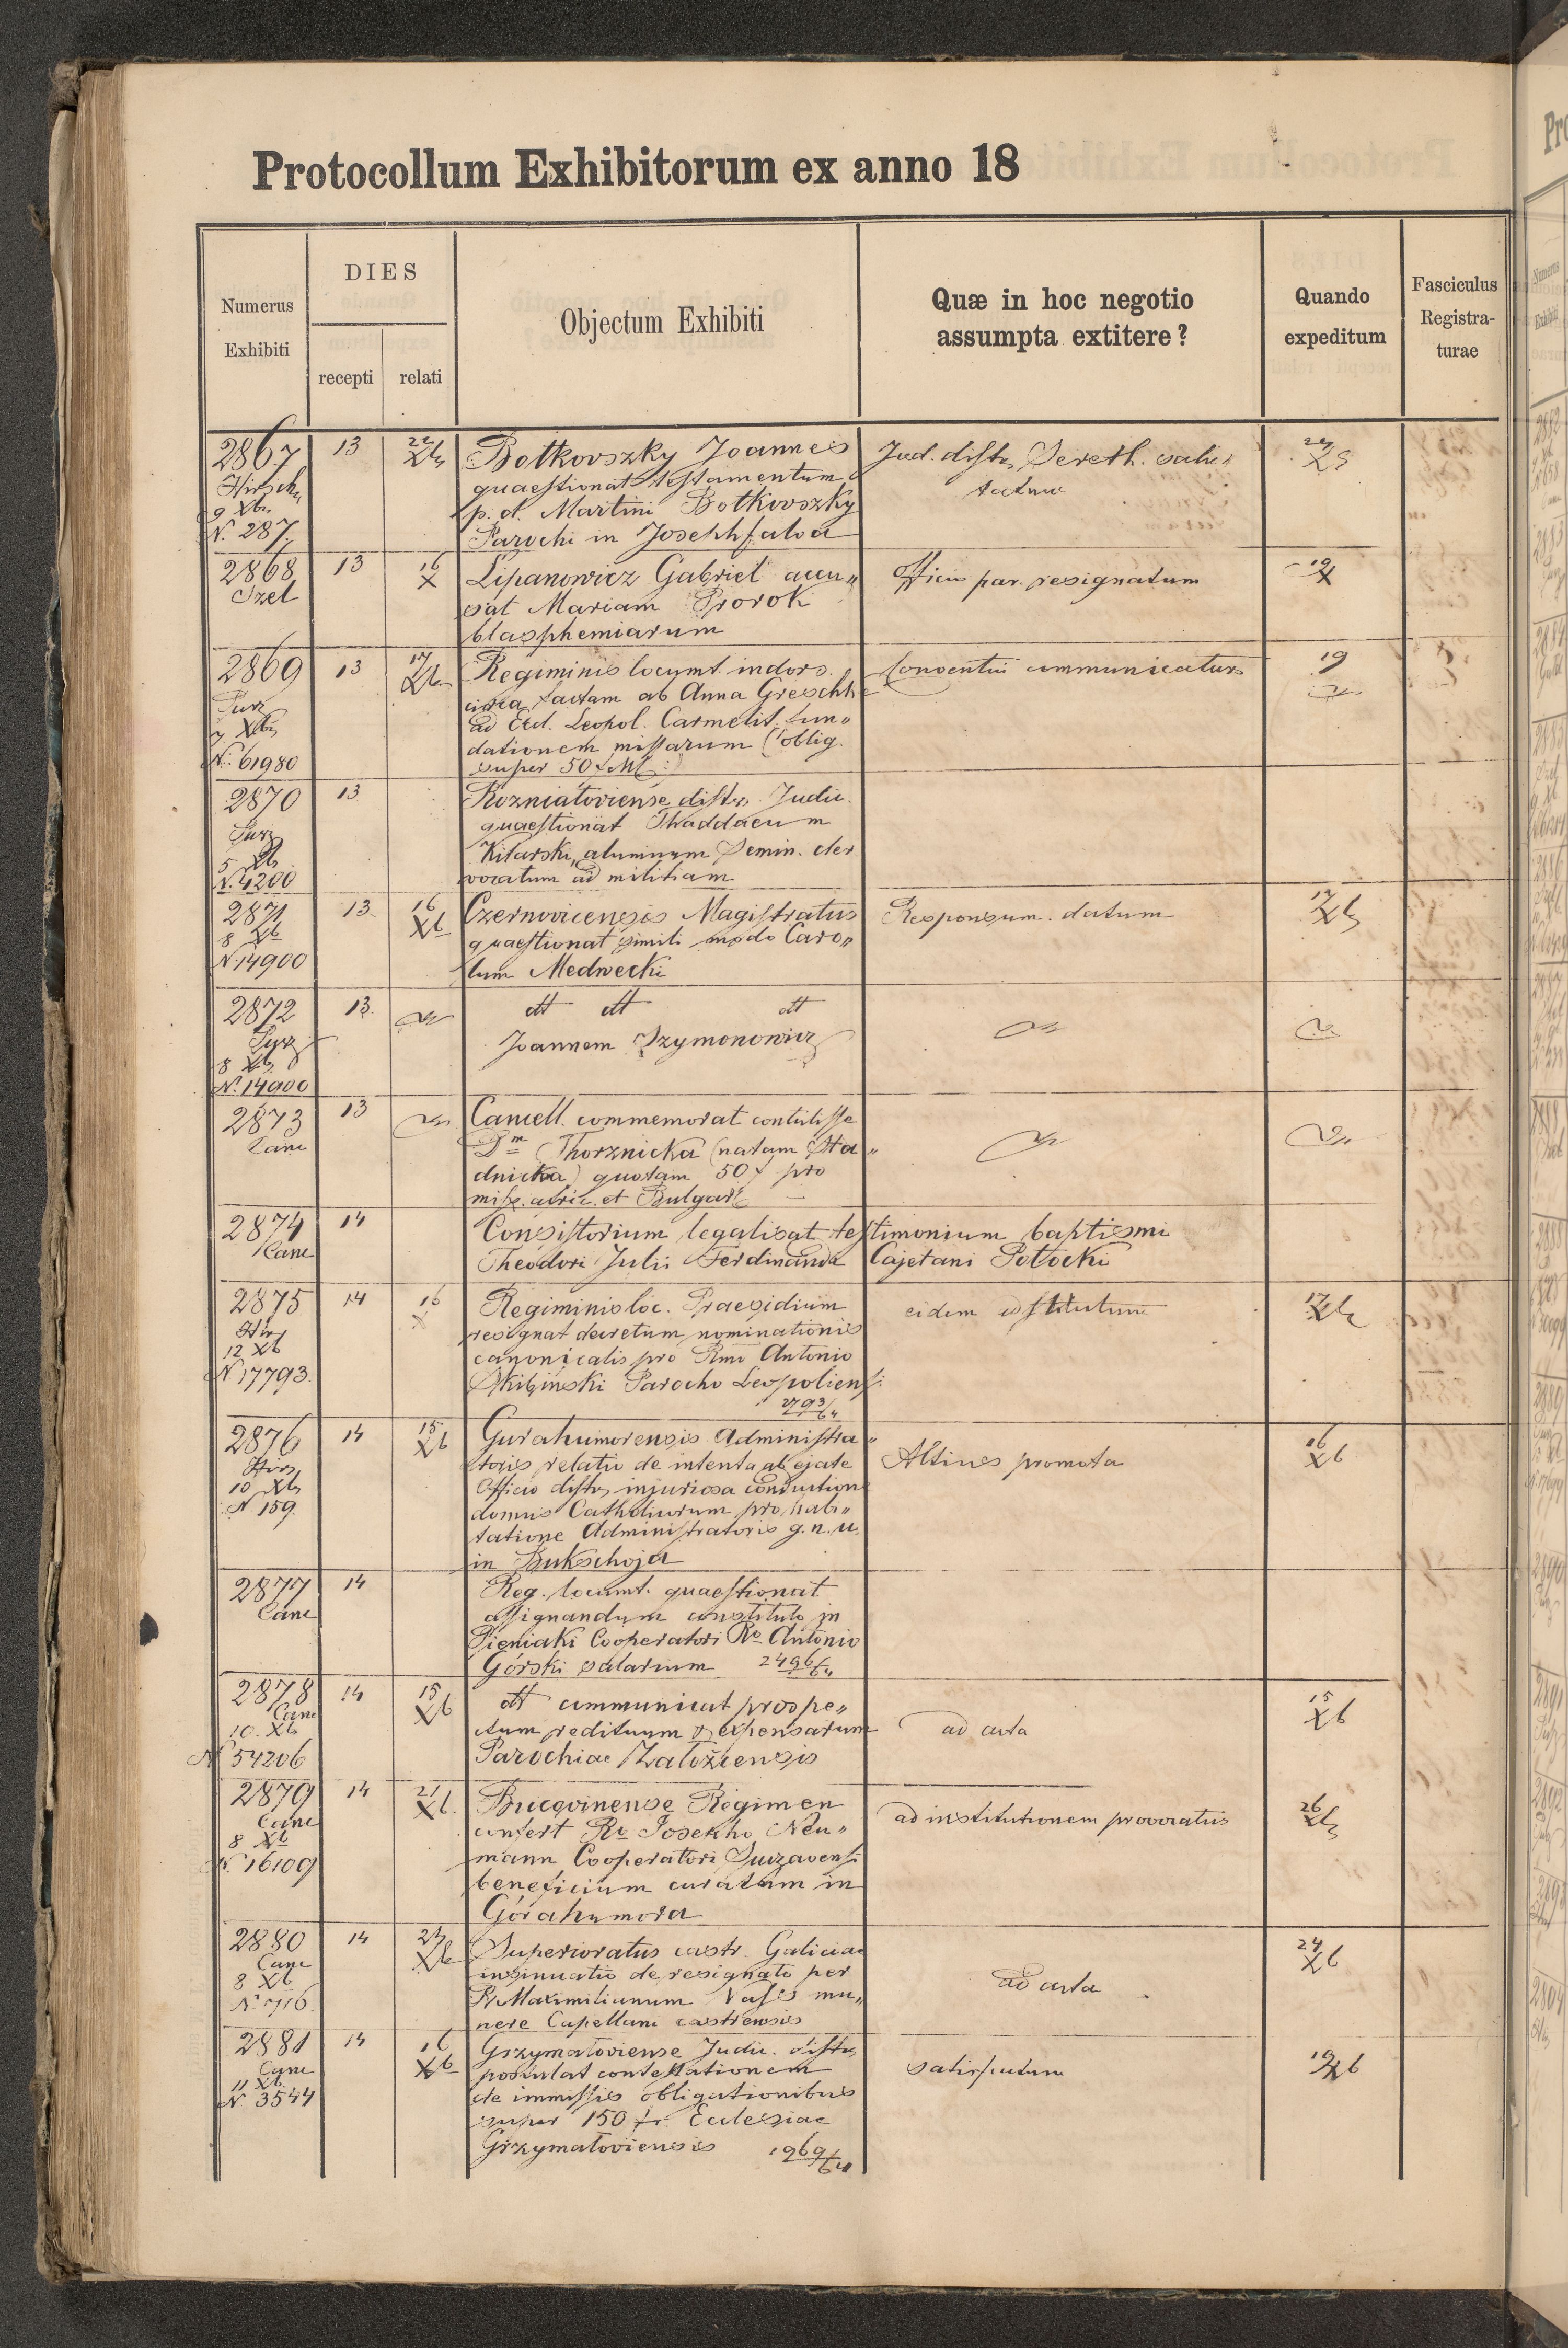 Protocollum Exhibitorum ex anno 18
Numerus Exhibiti
DIES
recepti
relati
Objectum Exhibiti
Quæ in hoc negotio assumpta extitere?
Quando expeditum
Fasciculus Registraturae
2867
13
22 Xb
Botkovszky Joannes
Jud. distr. Sereth.
9 Xb
quaestionat testamentum
p. d. Martini Botkovszky
N. 287.
Parochi in Josephfalva
2868
13
16 X
Lipanowicz Gabriel accu„
officio par. resignatum
19 X
sat Mariam Prorok
blasphemiarum
2869
13
17 Xb
Regiminis locumt. indors.
Conventui communicatur
19
circa factam ab Anna
7 Xb
ad Eccl. Leopol. Carmelit. fun„
dationem missarum (oblig.
N. 61980
super 50 f
2870
13
Rozniatoviense distr. Judic.
quaestionat Thaddaeum
5 Xb
Kitarski, alumnum Semin.
N. 4200
vocatum ad militiam
2871
13
16 Xb
Czernovicensis Magistratus
Responsum datum
17 Xb
8 Xb
quaestionat simili modo Caro„
N 14900
lum Medwecki
2872
13
dt dt dt
Joannem Szymonowicz
8 Xb
N. 14900
2873
13
Cancell. commemorat contulisse
Canc
Thorznicka (natam Sta„
dnicka) quotam 50 f pro
miss. afric. et Bulgar
2874
14
Consistorium legalisat testimonium baptismi
Canc
Theodori Julii Ferdinandi Cajetani Potocki
2875
14
16 X
Regiminis loc. Praesidium
eidem
17 Xb
resignat decretum nominationis
12 Xb
canonicalis pro Rmo Antonio
N 17793.
Skibinski Parocho Leopoliensi
2793/64
2876
14
15 Xb
Gurahumorensis Administra„
Altius promota
16 Xb
toris relatio de intenta ab ejate
10 Xb
Officio distr. injuriosa conduction
N 159.
domus Catholicorum pro habi„
tatione Administratoris g. r. u.
in Bukschoja
2877
14
Reg. locumt. quaestionat
Canc
assignandum constituto in
Pieniaki Cooperatori Ro Antonio
Górski salarium 2496/64
2878
14
15 Xb
dt communicat prospe„
ad acta
15 Xb
Canc
10. Xb
ctum redituum & expensarum
N 54206
Parochiae Załožcensis
2879
14
21 Xb.
Bucovinense Regimen
ad institutionem provocatus
26 Xb
Canc
8 Xb
confert Ro Josepho Neu„
N. 16109
mann Cooperatori Suczavensi
beneficium curatum in
Górahumora
2880
14
23 Xb
Superioratus castr. Galiciae
ad acta
24 Xb
Canc
8 Xb
insinuatio de resignato per
N 716.
R. Maximilianum mu„
nere Capellani castrensis
2881
14
16 Xb
Grzymałoviense Judic. distr.
satisfactum
19 Xb
Canc
11 Xb.
postulat contestationem
N 3544
de immissis obligationibus
super 150 fr. Ecclesiae
Grzymałoviensis 1969/64